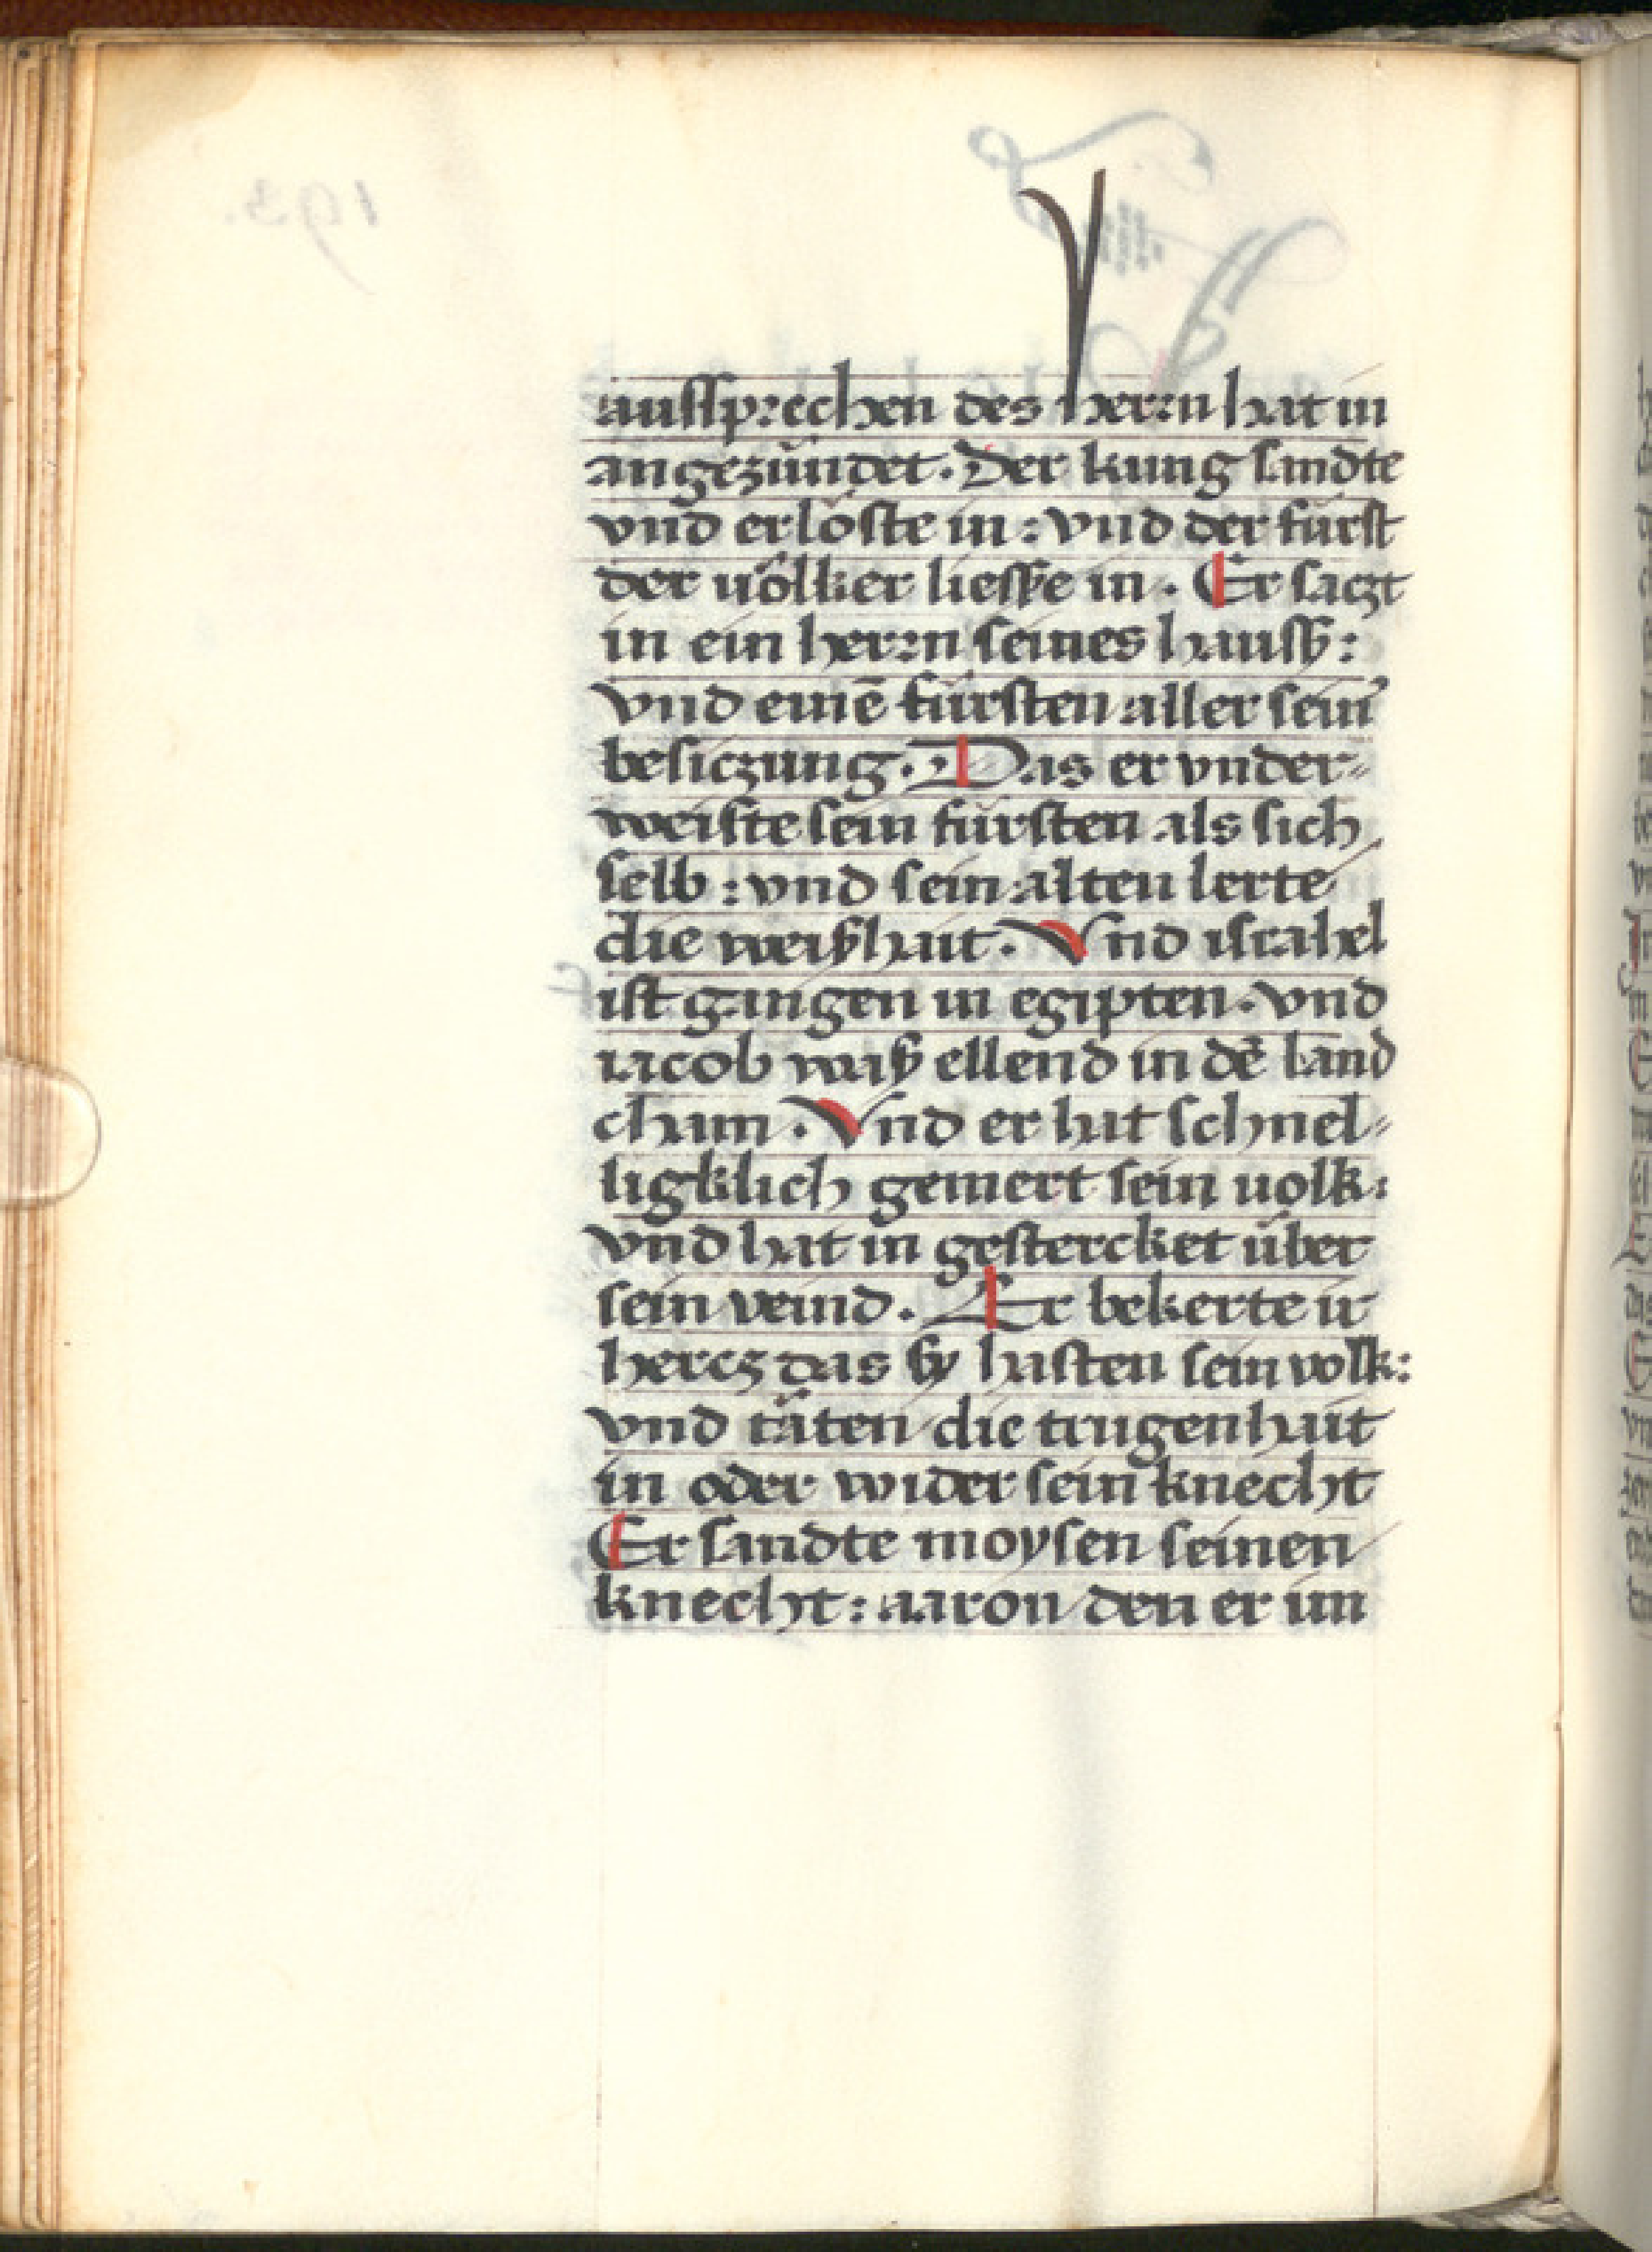 ausſsprechen des herrn hat in
angezündet. Der kung sandte
vnd erlöste in : vnd der fürst
der uölker liesse in . Er saczt
in ein herrn seines hausß :
vnd einē fürsten aller sein᷑
besiczung. Das er vnder⸗
weiste sein fürsten als sich
selb : vnd sein alten lerte
die weißhait. Vnd israhel
ist gangen in egipten. vnd
iacob waß ellend in dē land
cham. Vnd er hat schnel⸗
ligklich gemert sein uolk:
vnd hat in gestercket über
sein veind. Er bekerte ir
hercz das sy hasten sein volk:
vnd täten die trugenhait
in oder wider sein knecht
Er sandte moysen seinen
knecht: aaron den er im